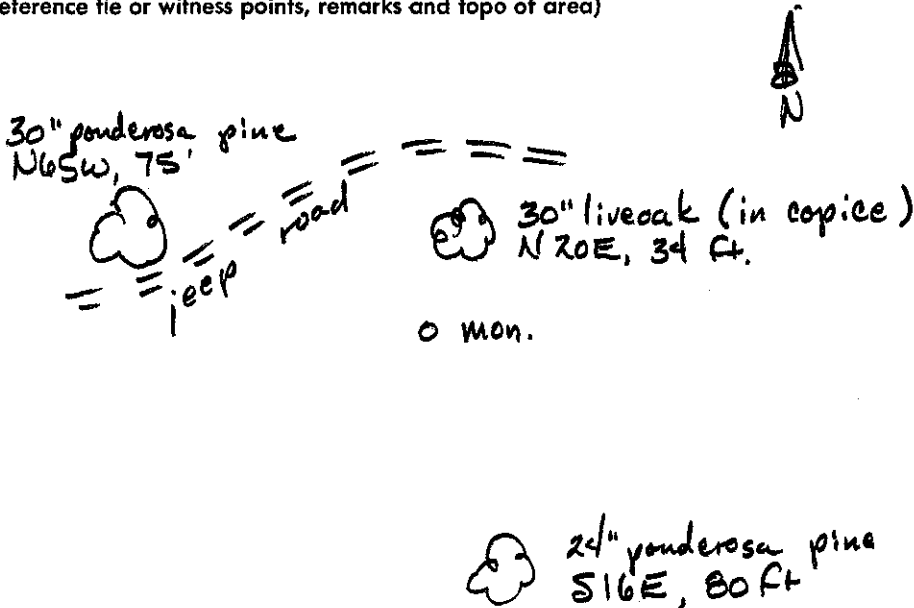 eference tie or witness points, remarks and topo of area)
N
30" ponderosa pine
N65W, 75'
jeep road
30" liveoak (in copice)
N20E, 34 ft.
o mon.
24" ponderosa pine
S16E, 80 ft